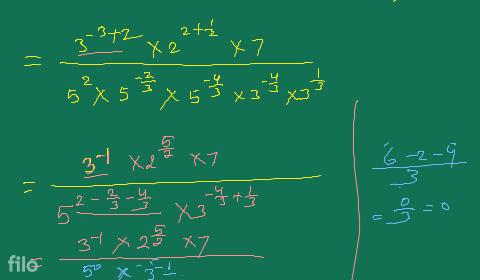 = (3^{-3+2} × 2^{2+1/2} × 7) / (5^2 × 5^{-2/3} × 5^{-4/3} × 3^{-4/3} × 3^{1/3})
= (3^{-1} × 2^{5/2} × 7) / (5^{2 - 2/3 - 4/3} × 3^{-4/3 + 1/3})
= (3^{-1} × 2^{5/2} × 7) / (5^0 × 3^{-1})
(6-2-4)/3
= 0/3 = 0
filo